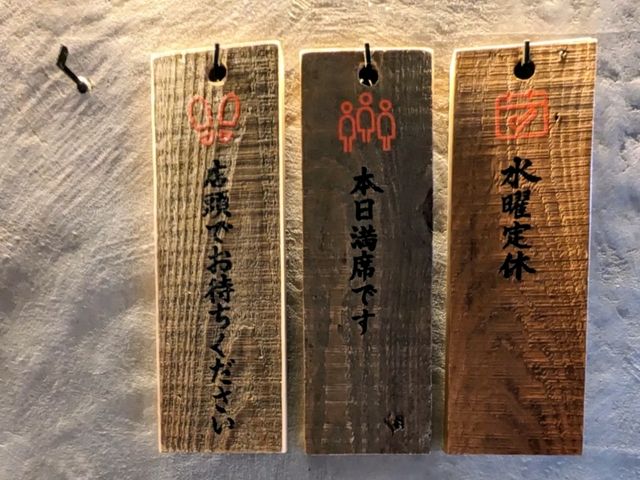 店頭でお待ちください
本日満席です
水曜定休